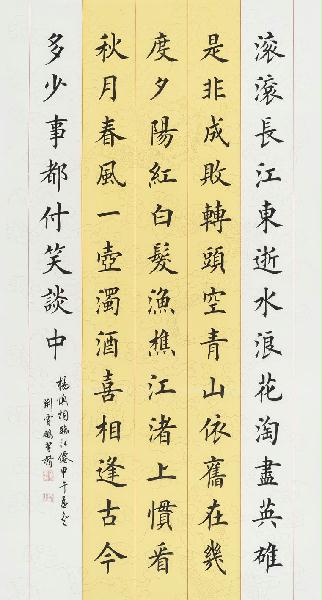 滾滾長江東逝水浪花淘盡英雄
是非成敗轉頭空青山依舊在幾
度夕陽紅白髮漁樵江渚上慣看
秋月春風一壺濁酒喜相逢古今
多少事都付笑談中
楊慎詞臨江僊甲午
荆霄鵬書